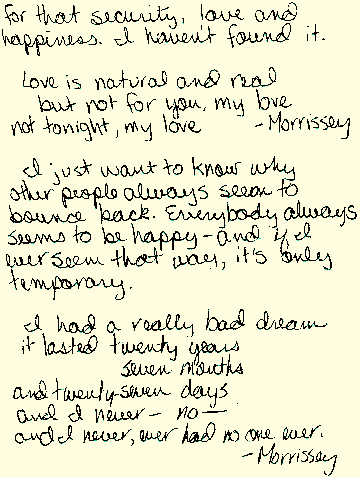 for that security, love and
happiness. I haven't found it.
Love is natural and real
but not for you, my love
not tonight, my love - Morrissey
I just want to know why
other people always seem to
bounce back. Everybody always
seems to be happy - and if I
ever seem that way, it's only
temporary.
I had a really bad dream
it lasted twenty years
seven months
and twenty-seven days
and I never - no -
and I never, ever had no one ever.
- Morrissey